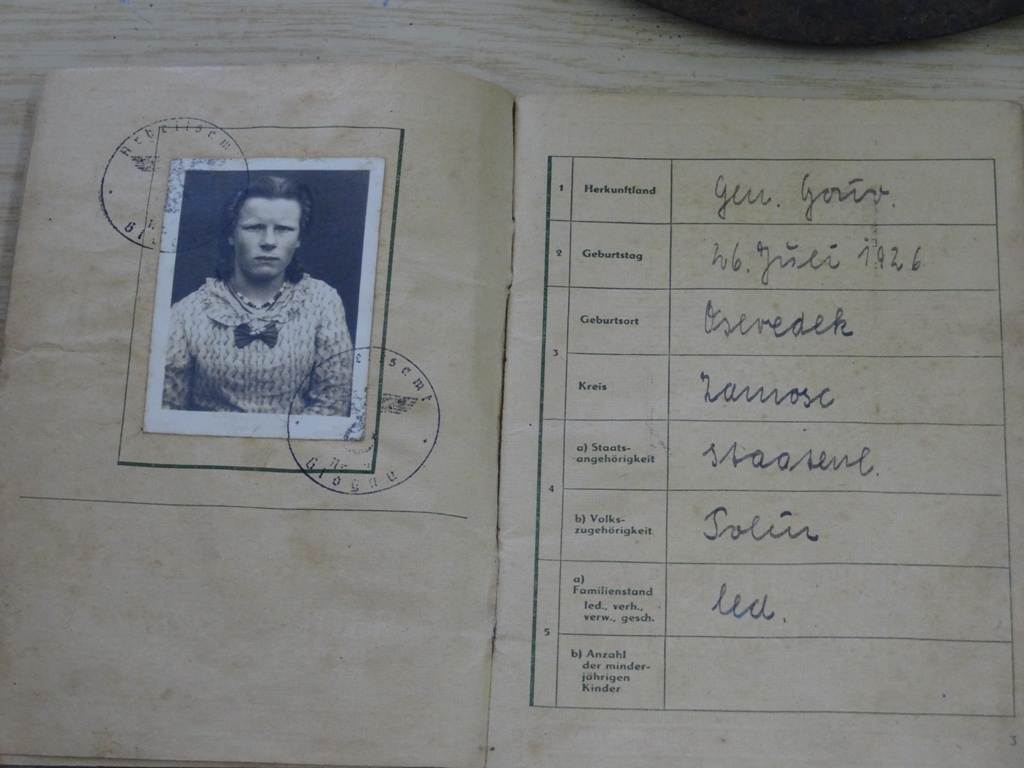 Arbeitsamt
Glogau
Arbeitsamt
Glogau
1 Herkunftland Gen. Gouv.
2 Geburtstag 26. Juli 1926
3 Geburtsort Osevedek
Kreis Zamosc
4 a) Staats-
angehörigkeit Staatenl.
b) Volks-
zugehörigkeit Polin
5 a)
Familienstand
led., verh.,
verw., gesch. led.
b) Anzahl
der minder-
jährigen
Kinder
3